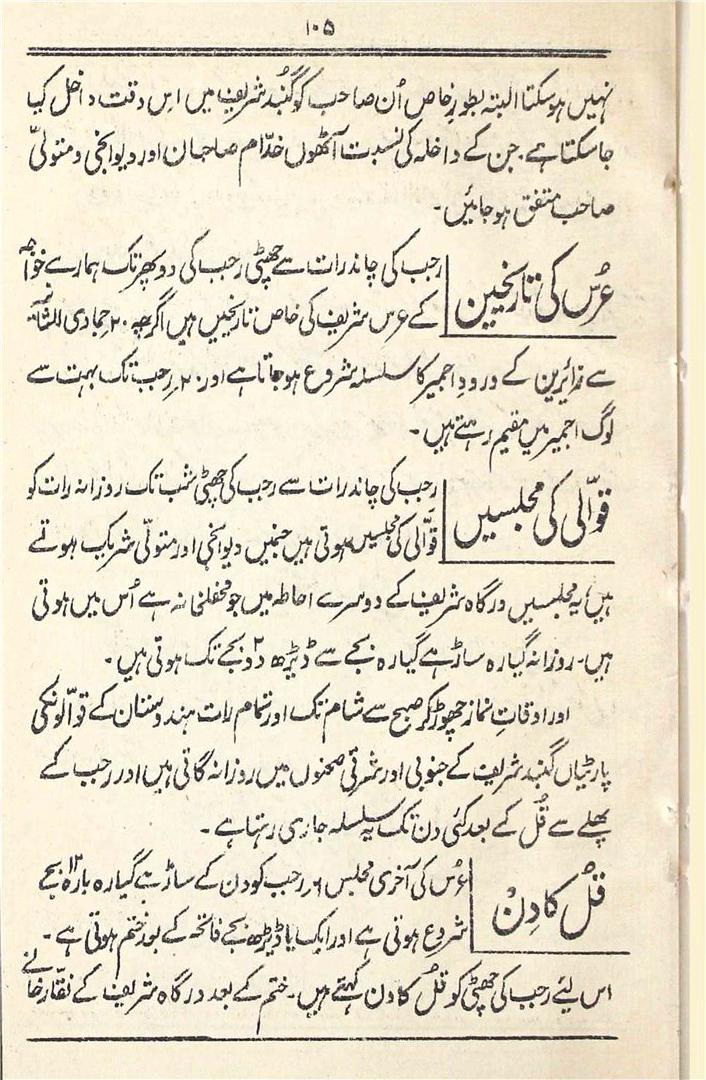 ۱۰۵
نہیں ہو سکتا البتہ بطورِ خاص اُن صاحب کو گنبد شریف میں اس وقت داخل کیا
جاسکتا ہے۔ جن کے داخلہ کی نسبت آٹھوں خدّام صاحبان اور دیوانجی و متولیّ
صاحب متفق ہوجائیں۔
عرُس کی تاریخین
رجب کی چاند رات سے چھٹی رجب کی دوپہر تک ہمارے خواجہ
کے عرس شریف کی خاص تاریخیں ہیں اگرچہ ۲۰؍جمادی الثانی
سے زائرین کے درودِ اجمیر کا سلسلہ شروع ہوجاتا ہے اور ۲۰؍رجب تک بہت سے
لوگ اجمیر میں مقیم رہتے ہیں۔
قوّالی کی مجلسیں
رجب کی چاند رات سے رجب کی چھٹی شب تک روزانہ رات کو
قوّالی کی مجلسیں ہوتی ہیں جنمیں دیوانجی اور متولّی شریک ہوتے
ہیں، یہ مجلسیں درگاہ شریف کے دوسرے احاطہ میں جو محفلخانہ ہے اُس میں ہوتی
ہیں۔ روزانہ گیارہ ساڑہے گیارہ بجے سے ڈیڑھ دو۲ بجے تک ہوتی ہیں۔
اور اوقاتِ نماز چھوڑ کر صبح سے شام تک اور تمام رات ہندوستان کے قوّالونکی
پارٹیاں گنبد شریف کے جنوبی اور شرقی صحنوں میں روزانہ گاتی ہیں اور رجب کے
پہلے سے قُل کے بعد کئی دن تک یہ سلسلہ جاری رہتا ہے۔
قلُ کا دِن
عرُس کی آخری مجلس ۶؍رجب کو دن کے ساڑہے گیارہ بارہ۱۲ بجے
شروع ہوتی ہے اور ایک یا ڈیڑھ بجے فاتحہ کے بعد ختم ہوتی ہے۔
اس لیئے رجب کی چھٹی کو قُل کا دن کہتے ہیں۔ ختم کے بعد درگاہ شریف کے نقّار خانے